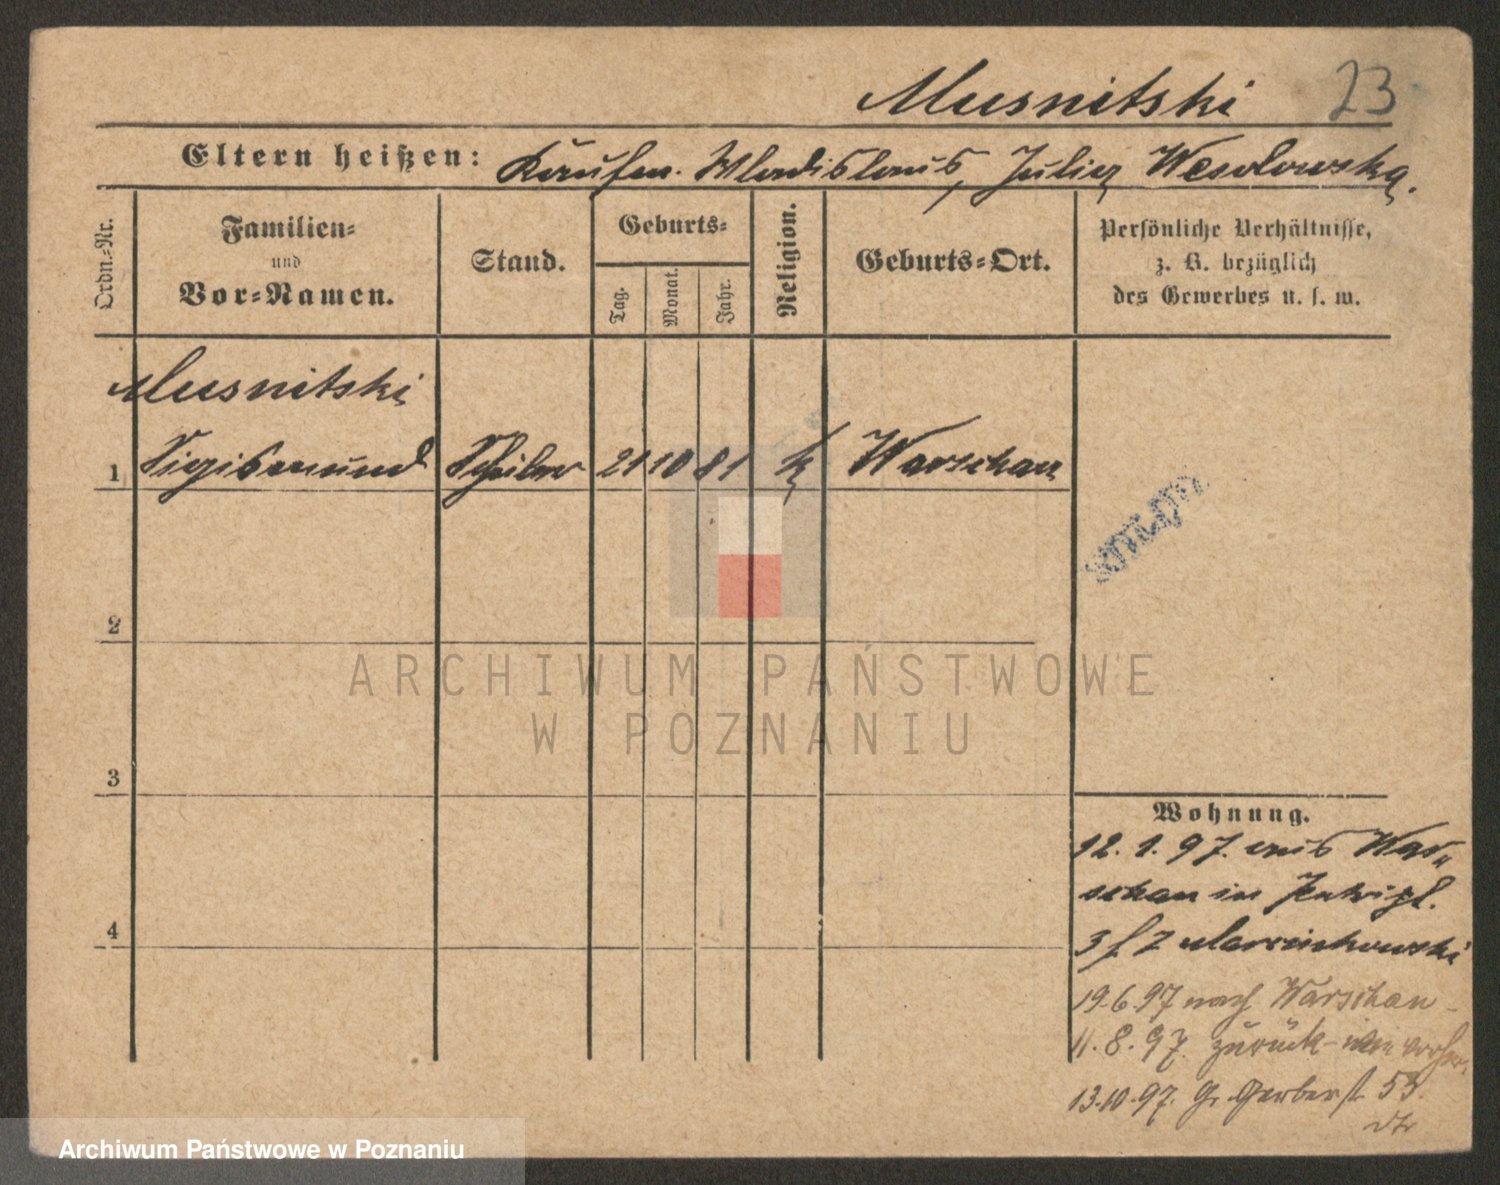 Musnitski 23
Eltern heißen: Kaufm. Wladislaus, Julia Wesolowska.
Ordn.-Nr.
Familien-
und
Vor-Namen.
Stand.
Geburts-
Tag.
Monat.
Jahr.
Religion.
Geburts-Ort.
Persönliche Verhältnisse,
z. B. bezüglich
des Gewerbes u. s. w.
Musnitski
1 Sigismund Schüler 21 10 81 k Warschau
2
3
4
Wohnung.
12. 1. 97. aus War-
schau in
3 f. Z Marcinkowski
19.6.97 nach Warschau
11.8.97. zurück wie vorher.
13.10.97. Gr. Gerberst 53.
ARCHIWUM PAŃSTWOWE
W POZNANIU
Archiwum Państwowe w Poznaniu